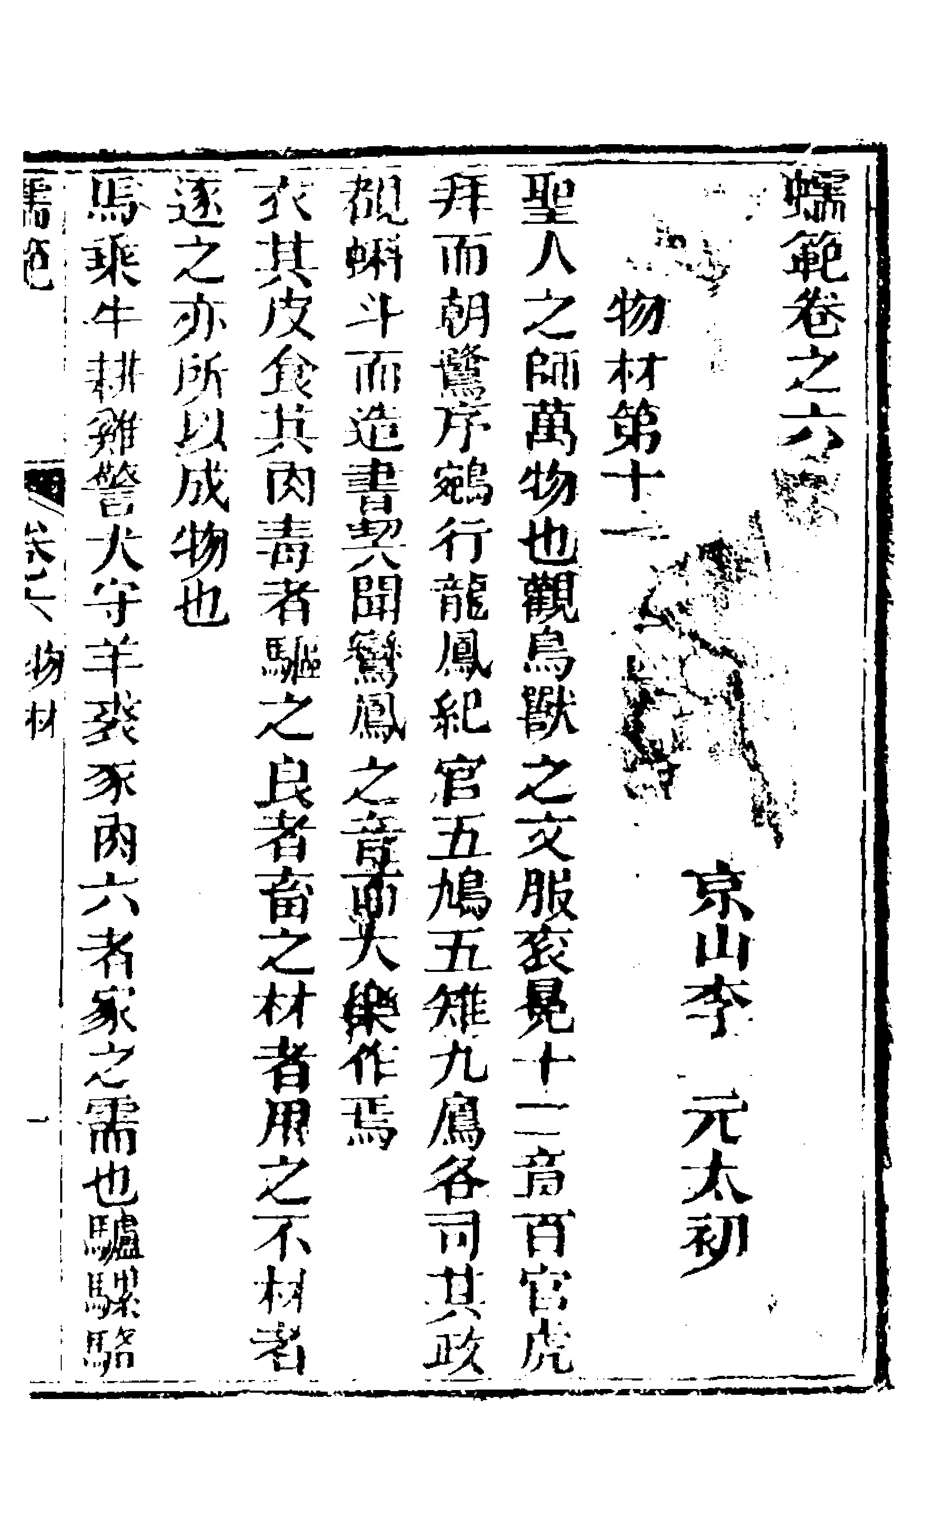 蠕範卷之六
京山李 元太初
物材第十一
聖人之師萬物也觀鳥獸之文服袞冕十二章百官虎
拜而朝鷺序鵷行龍鳳紀官五鳩五雉九鳸各司其政
覩蝌斗而造書契聞鸞鳳之音而大樂作焉
衣其皮食其肉毒者驅之良者畜之材者用之不材者
逐之亦所以成物也
馬乘牛耕雞警犬守羊裘豕肉六者家之需也驢騾駱
蠕範
卷之六 物材
一